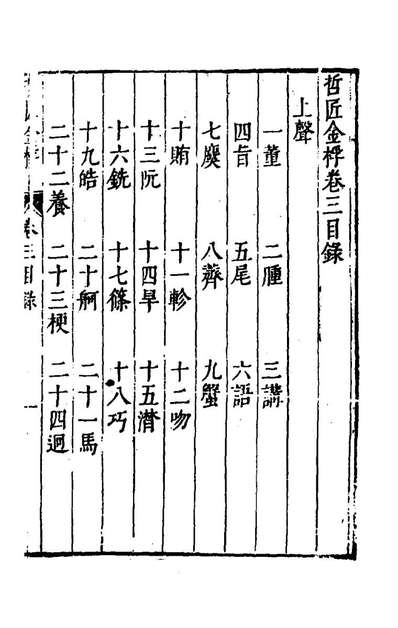 哲匠金桴卷三目錄
上聲
一董 二腫 三講
四旨 五尾 六語
七麌 八薺 九蟹
十賄 十一軫 十二吻
十三阮 十四旱 十五潸
十六銑 十七篠 十八巧
十九皓 二十哿 二十一馬
二十二養 二十三梗 二十四迥
卷三目錄 一